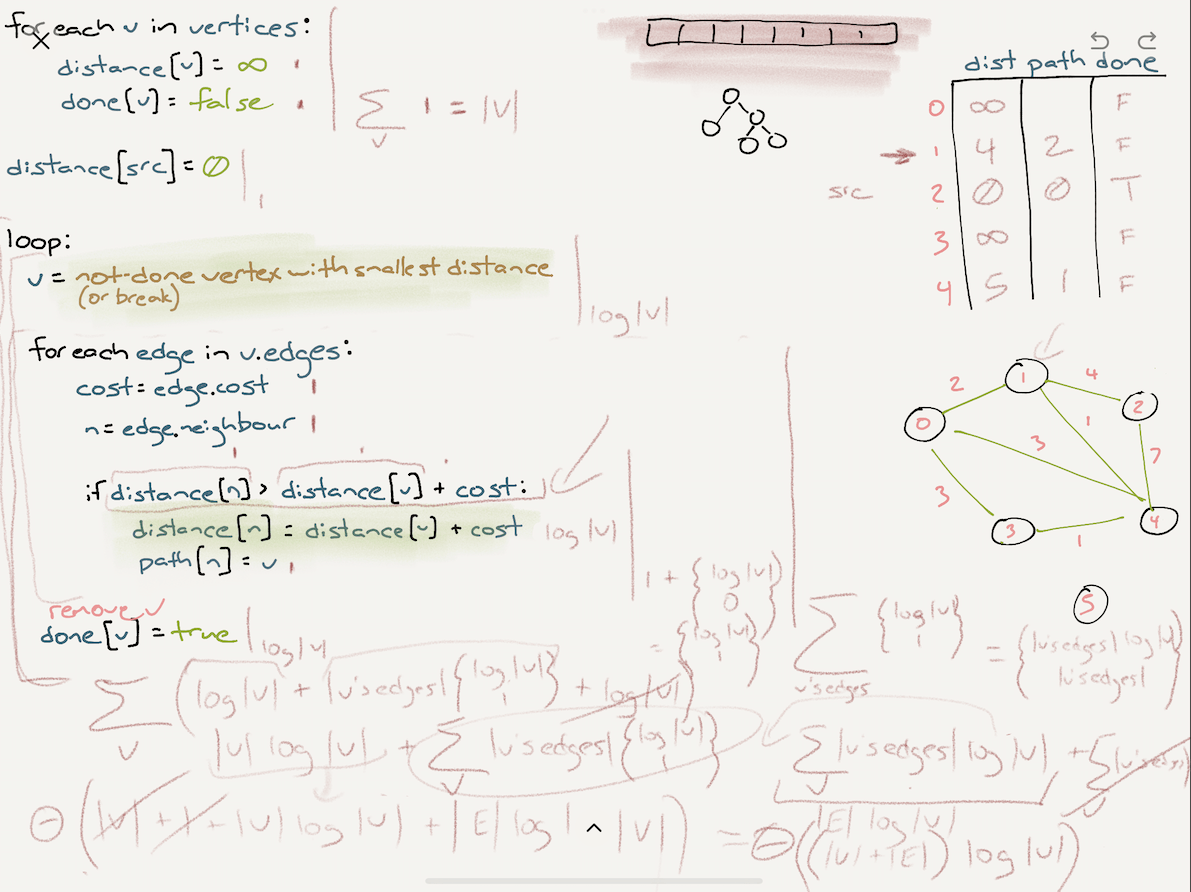 for each v in vertices:
distance[v] = ∞ 1
done[v] = false 1
∑ 1 = |V|
v
distance[src] = 0
1
loop:
v = not-done vertex with smallest distance
(or break)
log|V|
for each edge in v.edges:
cost = edge.cost 1
n = edge.neighbour 1
1 1
if distance[n] > distance[v] + cost:
distance[n] = distance[v] + cost log|V|
path[n] = v 1
remove v
done[v] = true log|V|
1 + { log|V|
0 }
= { log|V|
1 }
∑ { log|V|
1 } = { |v's edges| log|V|
|v's edges| }
v's edges
∑ ( log|V| + |v's edges| { log|V|
1 } + log|V| )
v
|V| log|V| + ∑ |v's edges| { log|V|
1 }
v
∑ |v's edges| log|V| + ∑ |v's edges|
v v
|E| log|V|
Θ( |V| + 1 + |V| log|V| + |E| log | ^ |V| ) = Θ( (|V| + |E|) log|V| )
dist path done
0 ∞ F
1 4 2 F
src 2 0 0 T
3 ∞ F
4 5 1 F
1
2 4
2
0 1
3 7
3
4
3 1
5